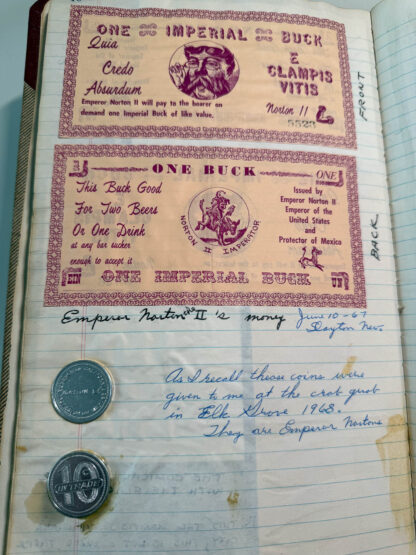 ONE IMPERIAL BUCK
Quia
Credo
Absurdum
E
CLAMPIS
VITIS
Emperor Norton II will pay to the bearer on
demand one Imperial Buck of like value.
Norton II
FRONT
ONE BUCK
ONE
This Buck Good
For Two Beers
Or One Drink
at any bar sucker
enough to accept it
NORTON II IMPERITOR
Issued by
Emperor Norton II
Emperor of the
United States
and
Protector of Mexico
ONE IMPERIAL BUCK
BACK
Emperor Norton the II's money
June 10-67
Dayton Nev
As I recall these coins were
given to me at the crab grab
in Elk Grove 1968.
They are Emperor Nortons
NORTON I
10
IN TRADE